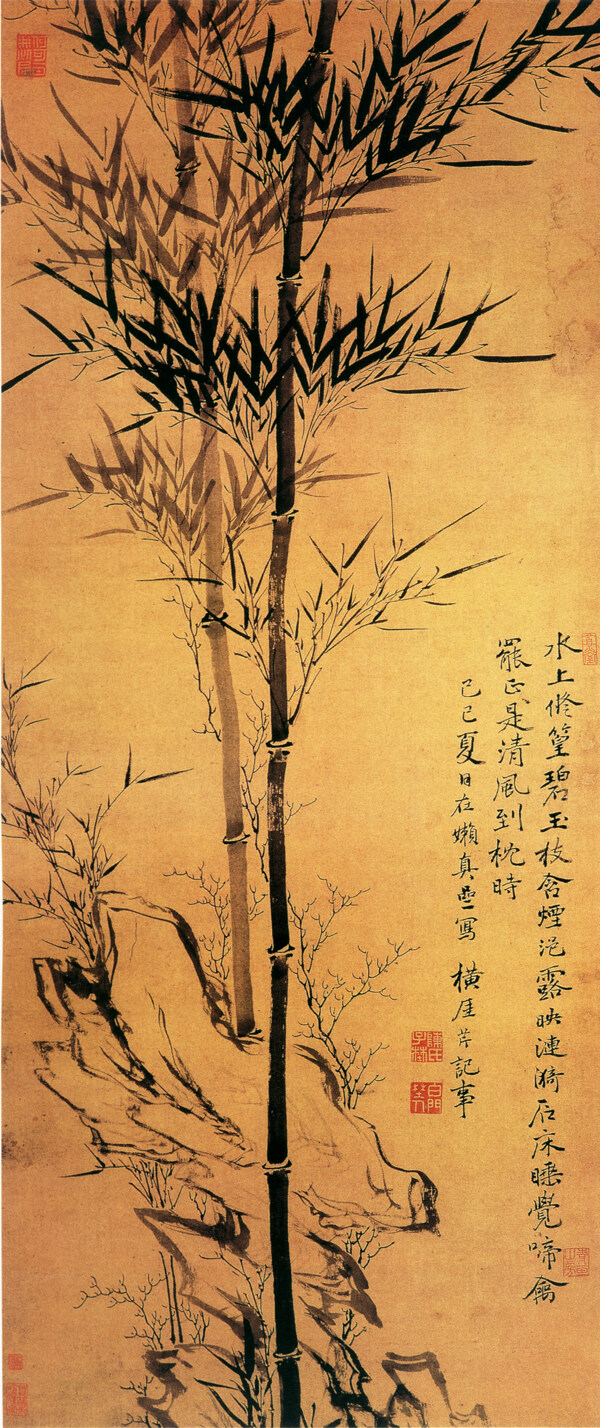 水上脩篁碧玉枝含煙浥露映漣漪石床睡覺啼禽
罷正是清風到枕時
己巳夏日在嬾真亝寫 橫厓芹記事